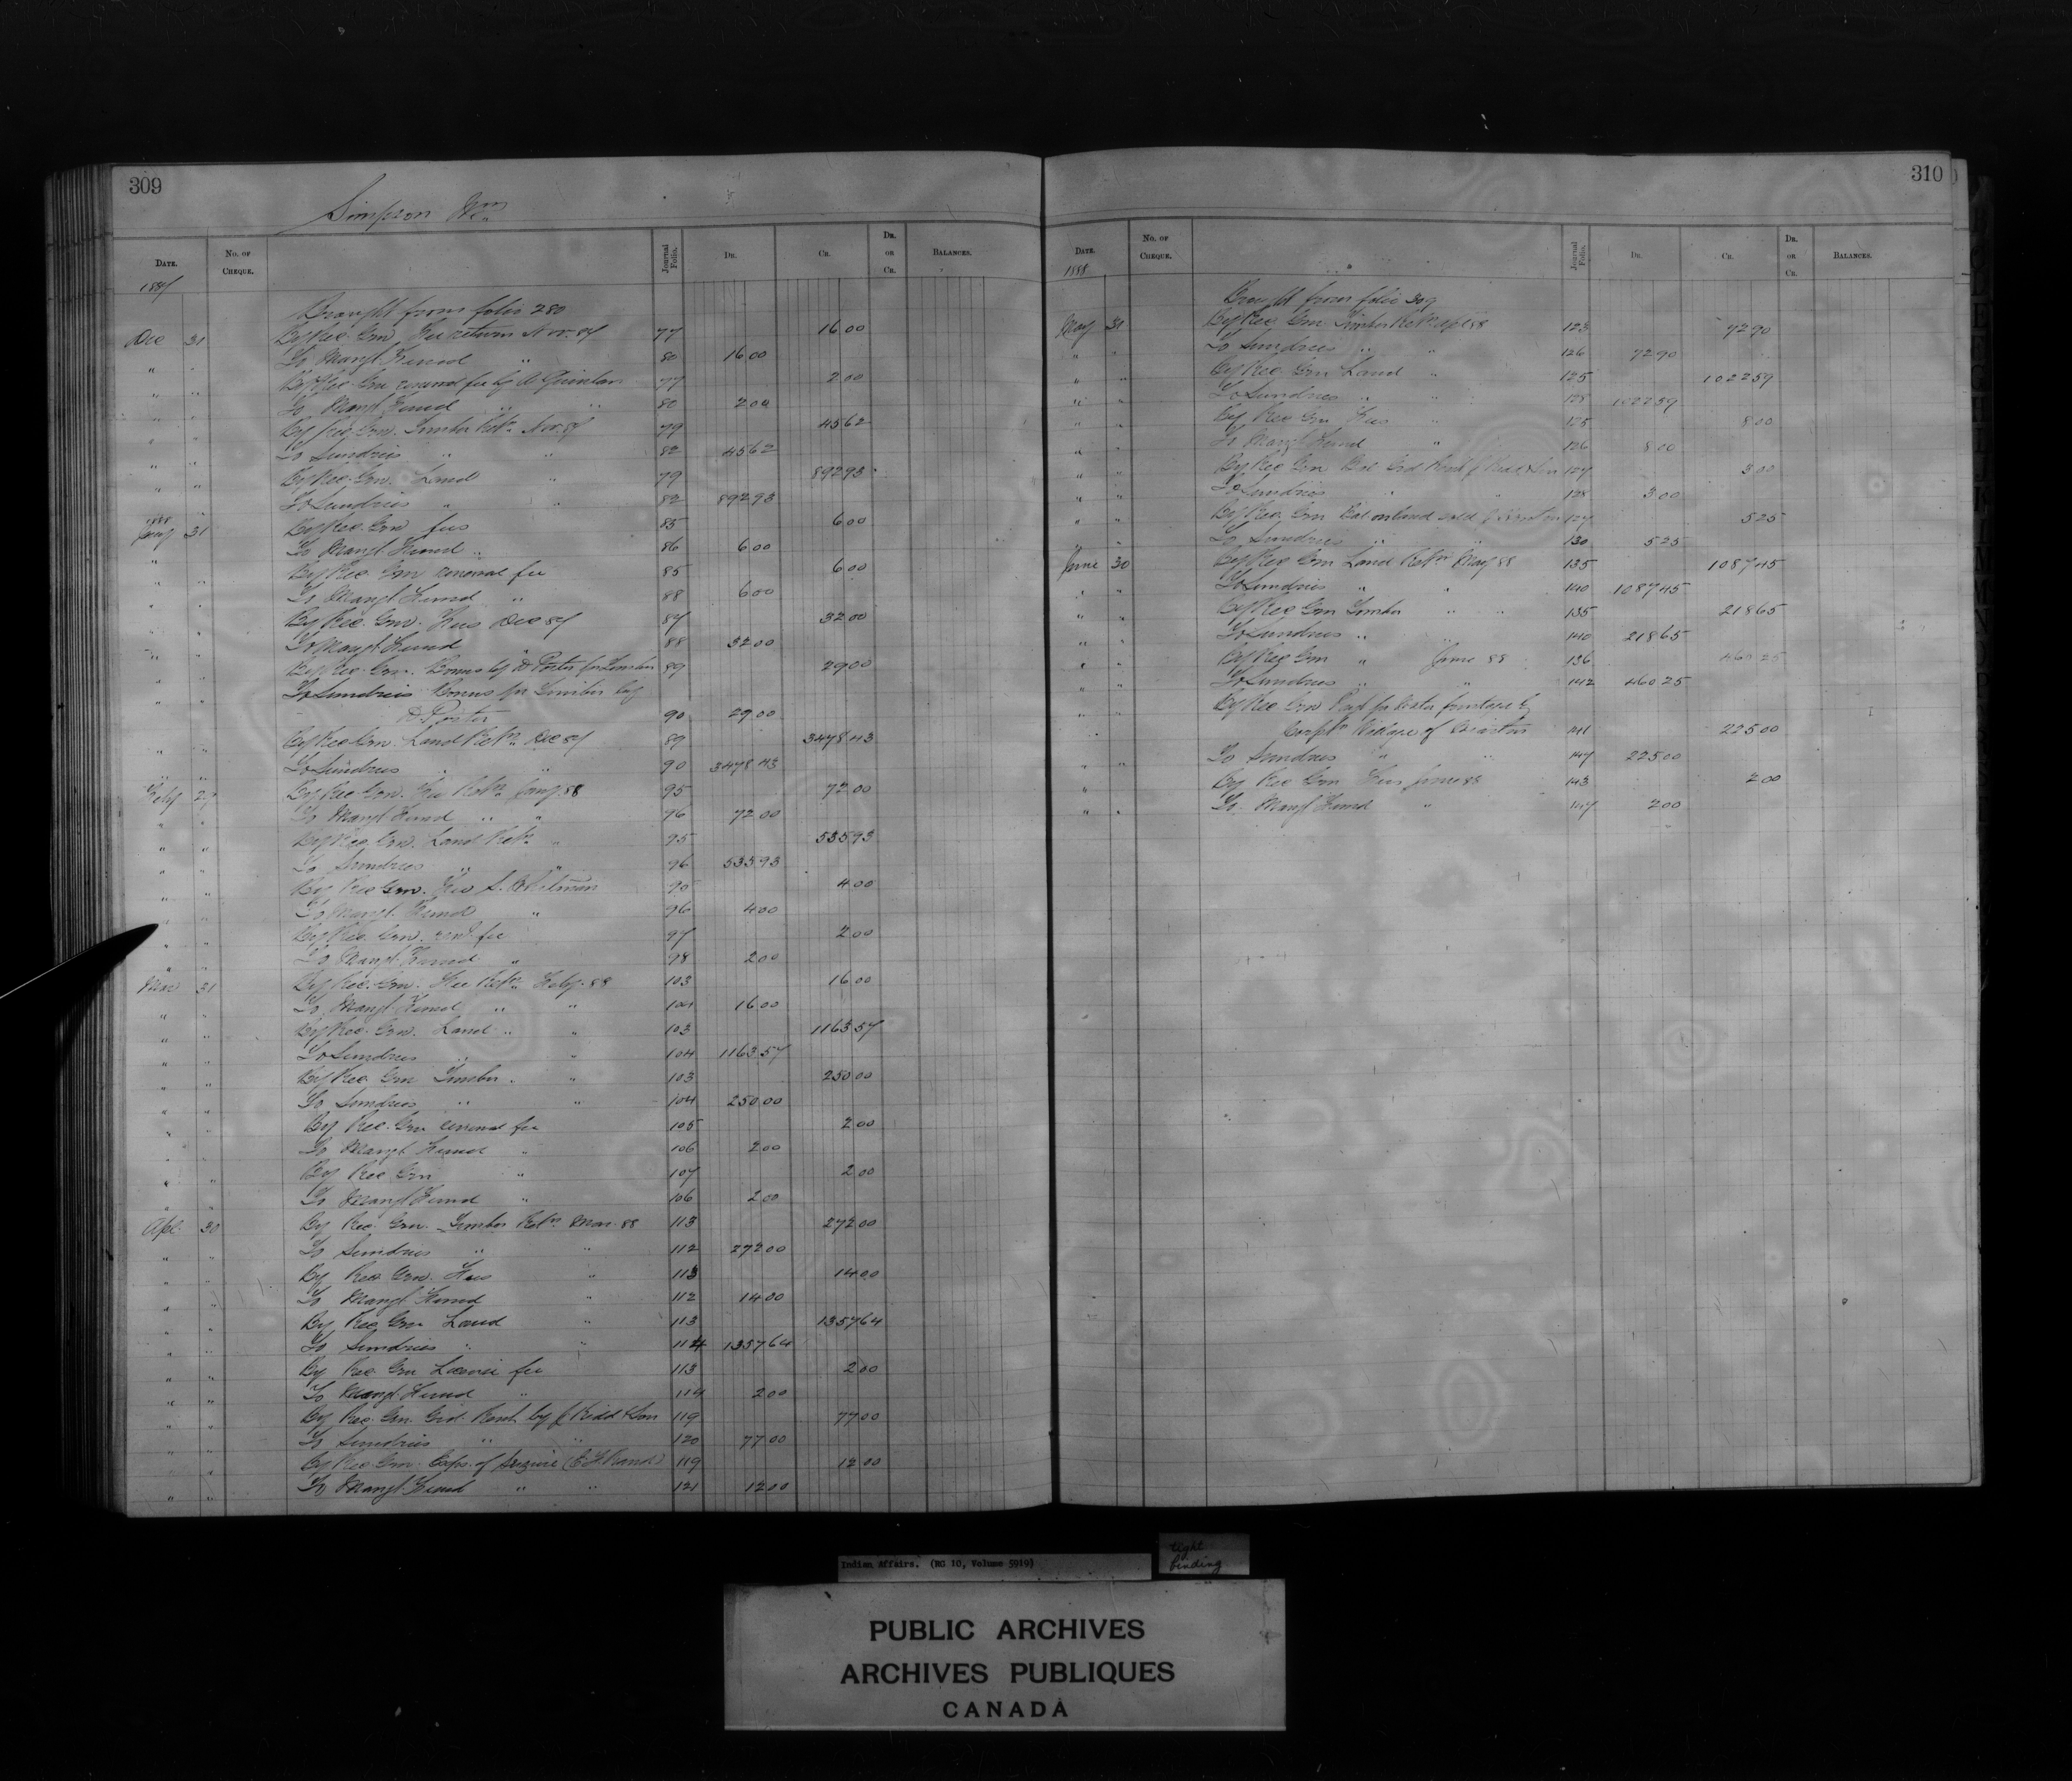 309
Simpson Wm
DATE. No. OF CHEQUE. Journal Folio. DR. CR. DR. OR CR. BALANCES.
1887
Brought from folio 280
Dec 31 By Rec. Gen. Fee return Nov. 87 77 16 00
" " To Mangt. Fund " 80 16 00
" " By Rec. Gen renewal fee by A Quinlan 77 2 00
" " To Mangt. Fund " " 80 2 00
" " By Rec. Gen. Timber Retn Nov. 87 79 45 62
" " To Sundries " " 82 45 62
" " By Rec. Gen. Land " 79 892 93
" " To Sundries " " 82 892 93
1888
Jany 31 By Rec. Gen fees 85 6 00
" " To Mangt. Fund " 86 6 00
" " By Rec. Gen renewal fee 85 6 00
" " To Mangt. Fund " 88 6 00
" " By Rec. Gen. Fees Dec 87 87 32 00
" " To Mangt Fund " 88 32 00
" " By Rec. Gen. Bonus by D Porter for Timber 89 29 00
" " To Sundries Bonus for Timber by
D Porter 90 29 00
" " By Rec Gen. Land Retn Dec 87 89 3478 43
" " To Sundries " " 90 3478 43
Feby 29 By Rec Gen. Fee Retn Jany 88 95 72 00
" " To Mangt Fund " " 96 72 00
" " By Rec. Gen. Land Retn " 95 535 93
" " To Sundries " " 96 535 93
" " By Rec Gen. Fee 95 4 00
" " To Mangt. Fund " 96 4 00
" " By Rec. Gen. ren. fee 97 2 00
" " To Mangt. Fund " 98 2 00
Mar 31 By Rec. Gen. Fee Retn Feby. 88 103 16 00
" " To Mangt. Fund " " 104 16 00
" " By Rec. Gen. Land " " 103 1163 57
" " To Sundries " " 104 1163 57
" " By Rec. Gen Timber " " 103 250 00
" " To Sundries " " 104 250 00
" " By Rec. Gen renewal fee 105 2 00
" " To Mangt Fund " 106 2 00
" " By Rec Gen " 107 2 00
" " To Mangt Fund " 106 2 00
Apl. 30 By Rec. Gen. Timber Retn Mar. 88 113 272 00
" " To Sundries " " 112 272 00
" " By Rec. Gen. Fees " 113 14 00
" " To Mangt. Fund " 112 14 00
" " By Rec. Gen Land " 113 1357 64
" " To Sundries " " 114 1357 64
" " By Rec. Gen License fee 113 2 00
" " To Mangt. Fund " 114 2 00
" " By Rec. Gen. Grd. Rent by J Kidd & Son 119 77 00
" " To Sundries " " 120 77 00
" " By Rec. Gen. Exps. of Seizure 119 12 00
" " To Mangt. Fund " " 121 12 00
310
DATE. No. OF CHEQUE. Journal Folio. DR. CR. DR. OR CR. BALANCES.
1888
Brought from folio 309
May 31 By Rec. Gen Timber Retn Apl 88 123 72 90
" " To Sundries " " 126 72 90
" " By Rec. Gen Land " 125 1022 59
" " To Sundries " " 128 1022 59
" " By Rec Gen Fees " 125 8 00
" " To Mangt Fund " 126 8 00
" " By Rec Gen Bal Grd Rent J Kidd & Son 127 3 00
" " To Sundries " " 128 3 00
" " By Rec. Gen Bal. on land sold 127 5 25
" " To Sundries " " 130 5 25
June 30 By Rec Gen Land Retn May 88 135 1087 45
" " To Sundries " " 140 1087 45
" " By Rec Gen Timber " " 135 218 65
" " To Sundries " " 140 218 65
" " By Rec Gen " June 88 136 460 25
" " To Sundries " " 142 460 25
" " By Rec Gen Payt for water frontage by
Corptn Village of Wiarton 141 225 00
" " To Sundries " " 147 225 00
" By Rec Gen Fees June 88 143 2 00
" " To Mangt Fund " 147 2 00
Indian Affairs. (RG 10, Volume 5919)
tight
binding
PUBLIC ARCHIVES
ARCHIVES PUBLIQUES
CANADA